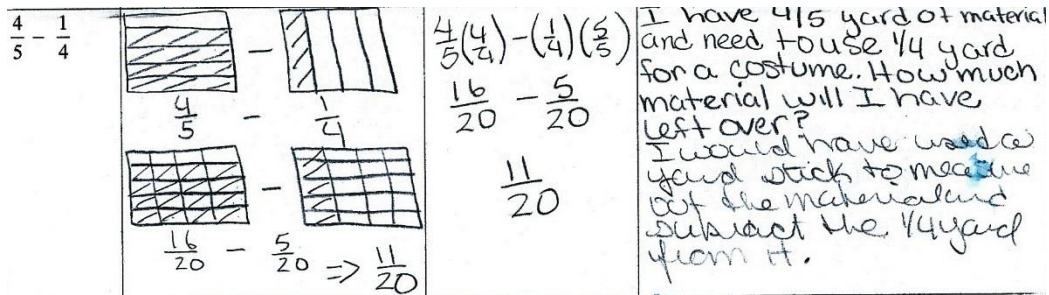 4/5 − 1/4
4/5 − 1/4
16/20 − 5/20 ⇒ 11/20
4/5(4/4) − (1/4)(5/5)
16/20 − 5/20
11/20
I have 4/5 yard of material
and need to use 1/4 yard
for a costume. How much
material will I have
left over?
I would have used a
yard stick to measure
out the material and
subtract the 1/4 yard
from it.